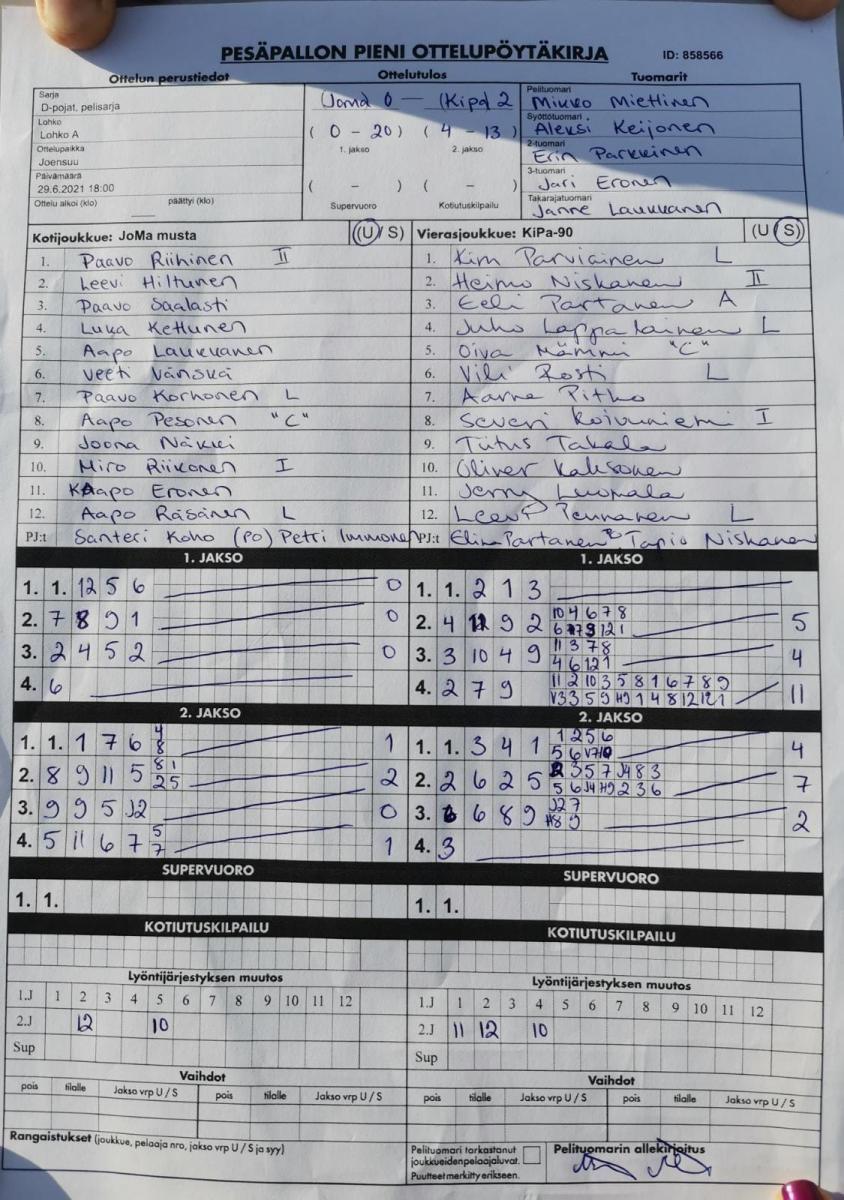 PESÄPALLON PIENI OTTELUPÖYTÄKIRJA
ID: 858566
Ottelun perustiedot
Ottelutulos
Tuomarit
Sarja
D-pojat, pelisarja
Lohko
Lohko A
Ottelupaikka
Joensuu
Päivämäärä
29.6.2021 18:00
Ottelu alkoi (klo) päättyi (klo)
(Joma) 0 — (Kipa) 2
( 0 - 20 ) ( 4 - 13 )
1. jakso 2. jakso
( - ) ( - )
Supervuoro Kotiutuskilpailu
Pelituomari
Mikko Miettinen
Syöttötuomari
Aleksi Keijonen
2-tuomari
Erin Parkkinen
3-tuomari
Jari Eronen
Takarajatuomari
Janne Laukkanen
Kotijoukkue: JoMa musta (U / S)
1. Paavo Riihinen II
2. Leevi Hiltunen
3. Paavo Saalasti
4. Luka Kettunen
5. Aapo Laukkanen
6. Veeti Vänskä
7. Paavo Korhonen L
8. Aapo Pesonen "C"
9. Joona Näkki
10. Miro Riikonen I
11. Kaapo Eronen
12. Aapo Räsänen L
PJ:t Santeri Koho (PO) Petri Immonen
Vierasjoukkue: KiPa-90 (U / S)
1. Kim Parviainen L
2. Heimo Niskanen II
3. Eeli Partanen A
4. Juho Lappalainen L
5. Oiva Mämmi "C"
6. Vili Rosti L
7. Aarne Pitko
8. Severi Koivuniemi I
9. Titus Takala
10. Oliver Kaksonen
11. Jerry Luomala
12. Leevi Pennanen L
PJ:t Elina Partanen Tapio Niskanen
1. JAKSO
1. 1. 12 5 6 0
2. 7 8 9 1 0
3. 2 4 5 2 0
4. 6
1. JAKSO
1. 1. 2 1 3
2. 4 11 9 2 10 4 6 7 8 5
3. 3 10 4 9 11 3 7 8 4
4 6 12 1
4. 2 7 9 11 2 10 3 5 8 1 6 7 8 9 11
2. JAKSO
1. 1. 1 7 6 4 1
8
2. 8 9 11 5 8 1 2
2 5
3. 9 9 5 J2 0
4. 5 11 6 7 5 1
7
2. JAKSO
1. 1. 3 4 1 1 2 5 6 4
2. 2 6 2 5 3 5 7 J4 8 3 7
5 6 J4 H9 2 3 6
3. 6 6 8 9 J2 7 2
H8 9
4. 3
SUPERVUORO
1. 1.
SUPERVUORO
1. 1.
KOTIUTUSKILPAILU
KOTIUTUSKILPAILU
Lyöntijärjestyksen muutos
1.J 1 2 3 4 5 6 7 8 9 10 11 12
2.J 12 10
Sup
Lyöntijärjestyksen muutos
1.J 1 2 3 4 5 6 7 8 9 10 11 12
2.J 11 12 10
Sup
Vaihdot
pois tilalle Jakso vrp U / S pois tilalle Jakso vrp U / S
Vaihdot
pois tilalle Jakso vrp U / S pois tilalle Jakso vrp U / S
Rangaistukset (joukkue, pelaaja nro, jakso vrp U / S ja syy)
Pelituomari tarkastanut
joukkueiden pelaajaluvat.
Puutteet merkitty erikseen.
Pelituomarin allekirjoitus